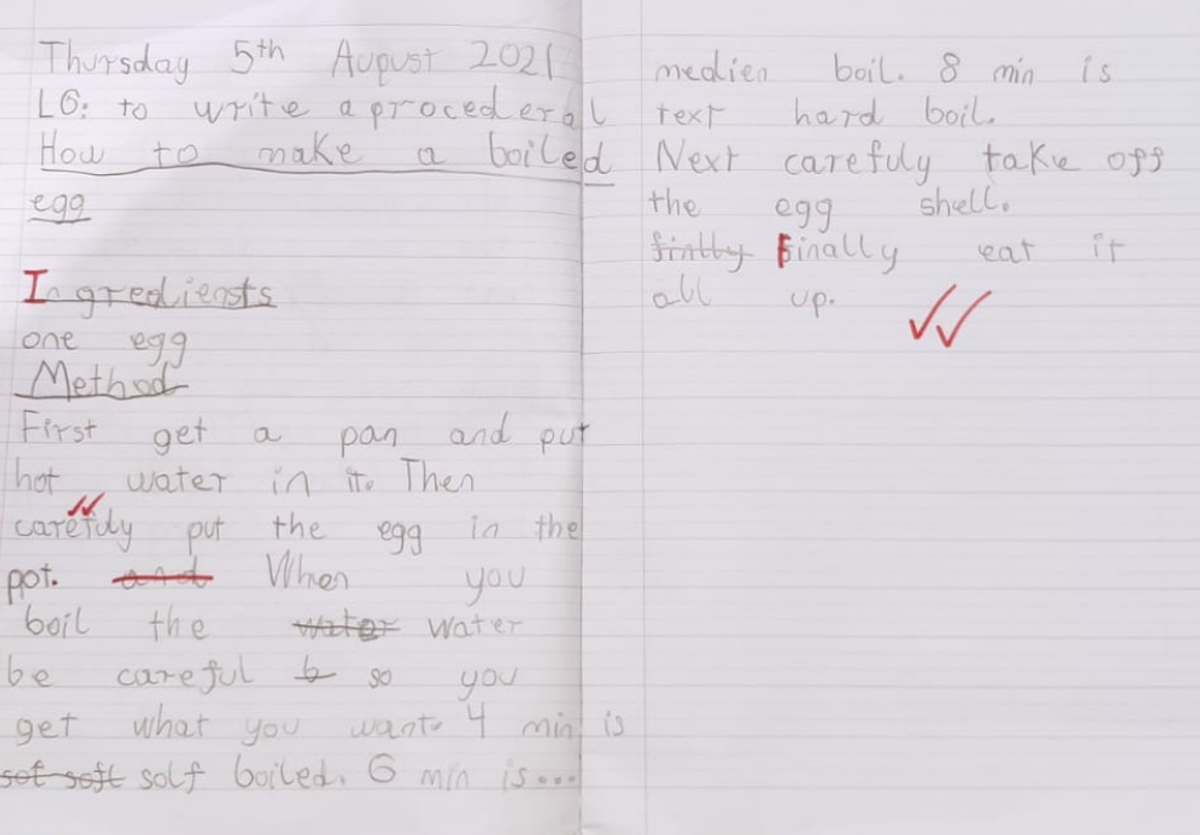 Thursday 5th August 2021
LG: to write a procederal text
How to make a boiled
egg
Ingrediensts
one egg
Method
First get a pan and put
hot water in it. Then
carefuly put the egg in the
pot. and When you
boil the water water
be careful b so you
get what you want. 4 min is
sof soft solf boiled. 6 min is...
medien boil. 8 min is
hard boil.
Next carefuly take off
the egg shell.
Finally eat it
all up.